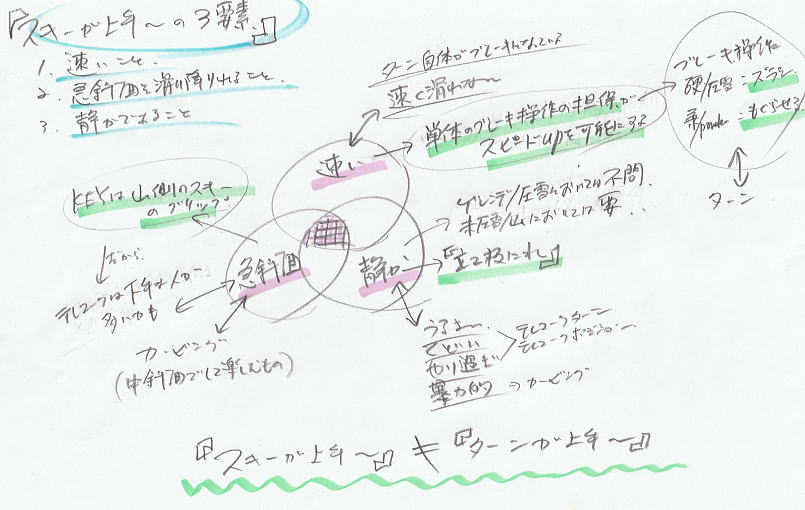 『スキーが上手〜の3要素』
1. 速いこと.
2. 急斜面を滑り降りれること.
3. 静かであること
ターン自体がブレーキになっている
速く滑れない〜
速い
単体のブレーキ操作の担保が
スピードupを可能にする
ブレーキ操作は
硬/圧雪:ズラシ
柔/powder:もぐらせる
ターン
KEYは山側のスキー
のグリップ。
急斜面
静か
ゲレンデ/圧雪においては不問.
未圧雪/山においては要..
『立て板に水』
だから
テレマークは下手な人が
多いかも
カービング
(中斜面でして楽しむもの)
うるさ〜.
くどい
やり過ぎ
暴力的 ⇒カービング
テレマークターン
テレマークポジション
『スキーが上手〜』≠『ターンが上手〜』